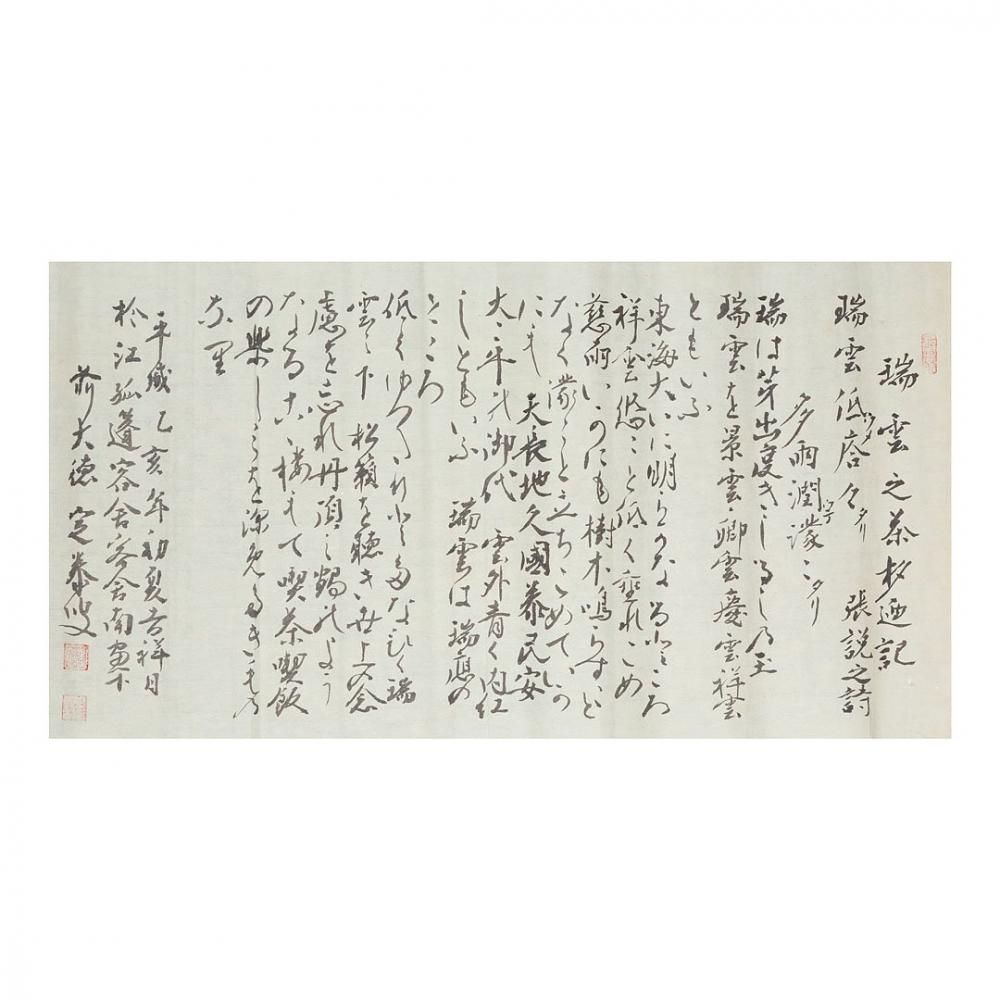 瑞雲之茶杓廼記
瑞雲低 張説之詩
多雨潤濛々タリ
瑞は芽出度きしるしの玉
瑞雲を景雲卿雲慶雲祥雲
ともいふ
東海大いに明らかなるところ
祥雲悠々と低く垂れこめ
慈雨いかにも樹木鳴らすと
なく濛々と立ちこめていか
にも 天長地久國泰民安
太平の御代 雲外青く内紅
しともいふ 瑞雲は瑞應の
ところ
低くゆつたりとたなびく瑞
雲の下 松籟を聴き世上の念
慮を忘れ丹頂の鶴のよう
なるこの様もて喫茶喫飯
の楽しみを深めたきもの
なり
平成乙亥年初夏吉祥日
於江孤蓬容舎南窗下
前大徳 定泰叟